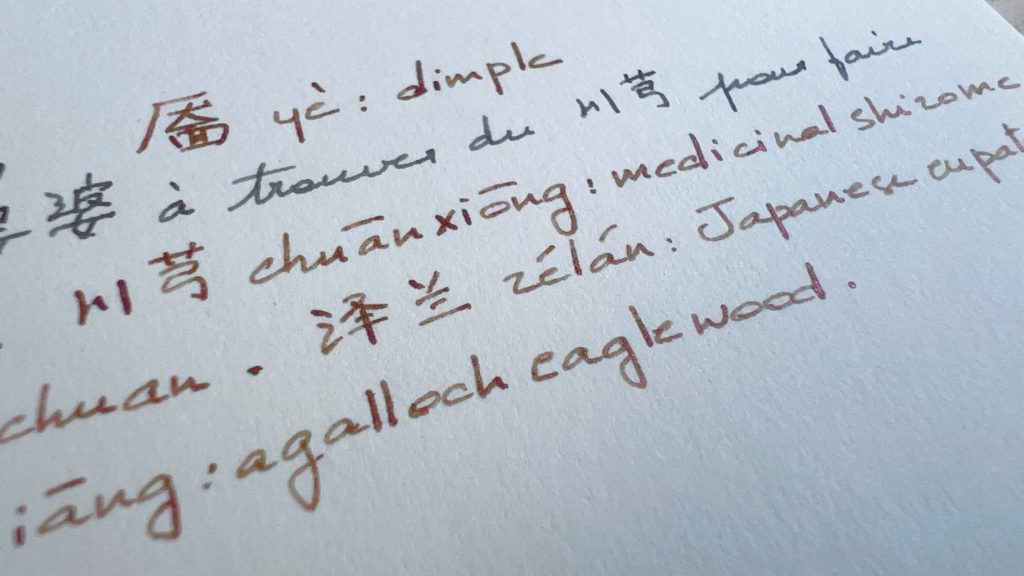 靥 yè: dimple
婆 à trouver du 川芎 pour faire
川芎 chuānxiōng: medicinal rhizome
chuan. 泽兰 zélán: Japanese eupat
iāng: agalloch eaglewood.